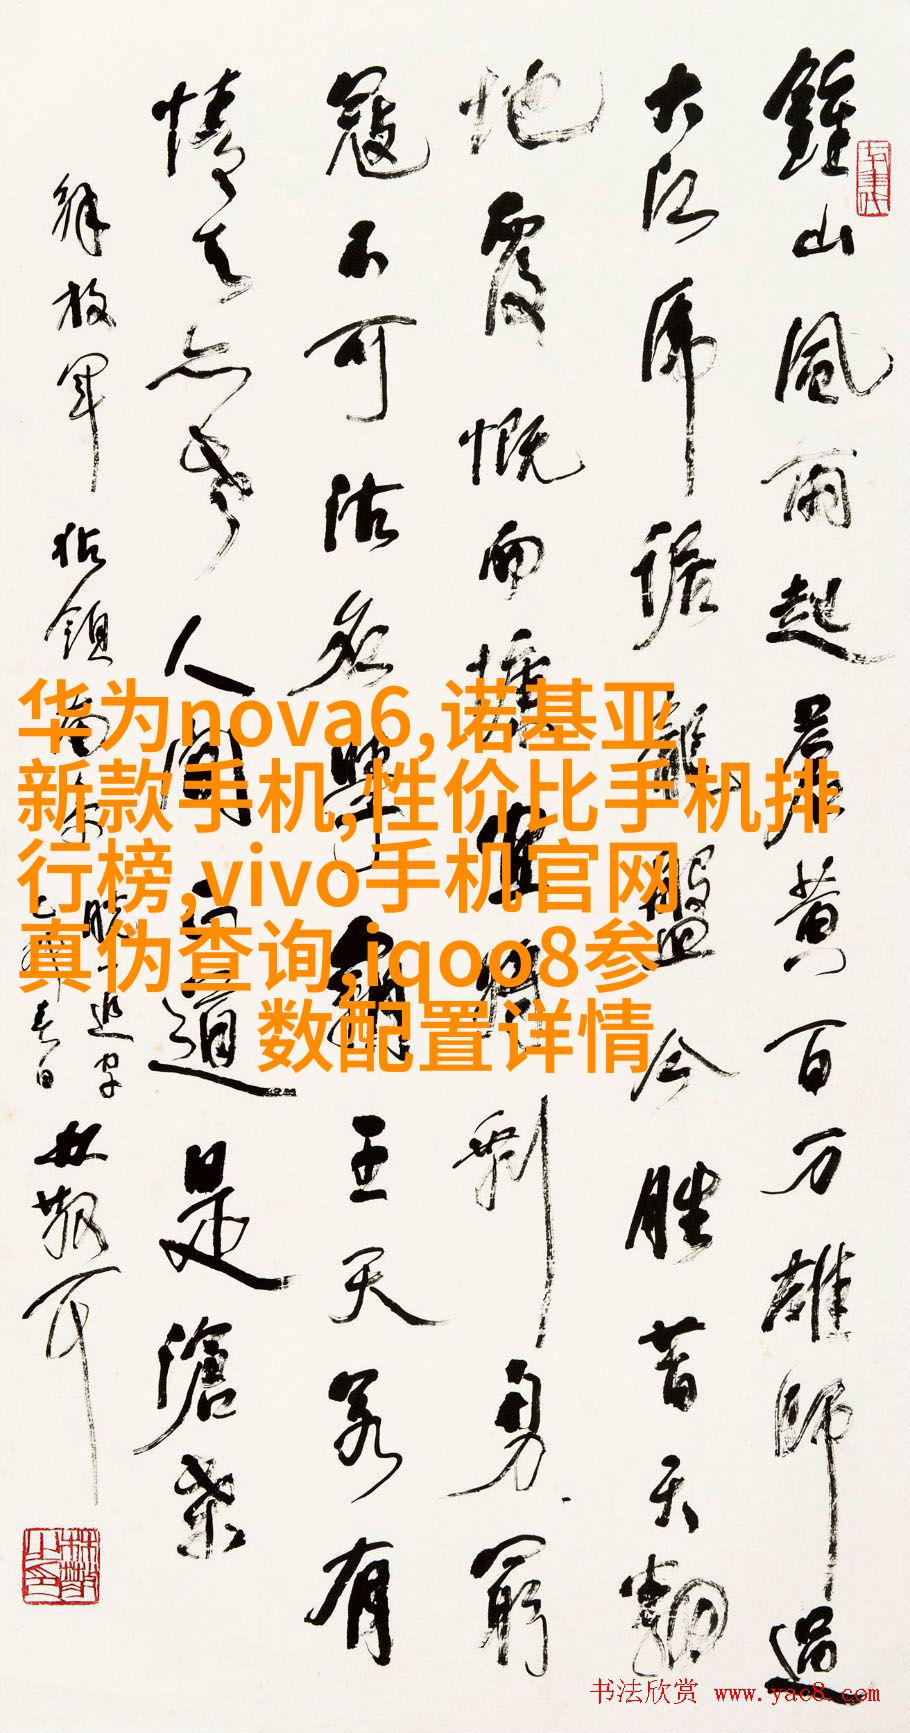 鍾山風雨起蒼黄百万雄師過
大江虎踞龍盤今勝昔天翻
地覆慨而慷宜将剩勇窮
寇不可沽名學霸王天若有
情天亦老人間正道是滄桑
解放軍佔領南京
春日
林散耳
华为nova6,诺基亚
新款手机,性价比手机排
行榜,vivo手机官网
真伪查询,iqoo8参
数配置详情
书法欣赏 www.yac8.com